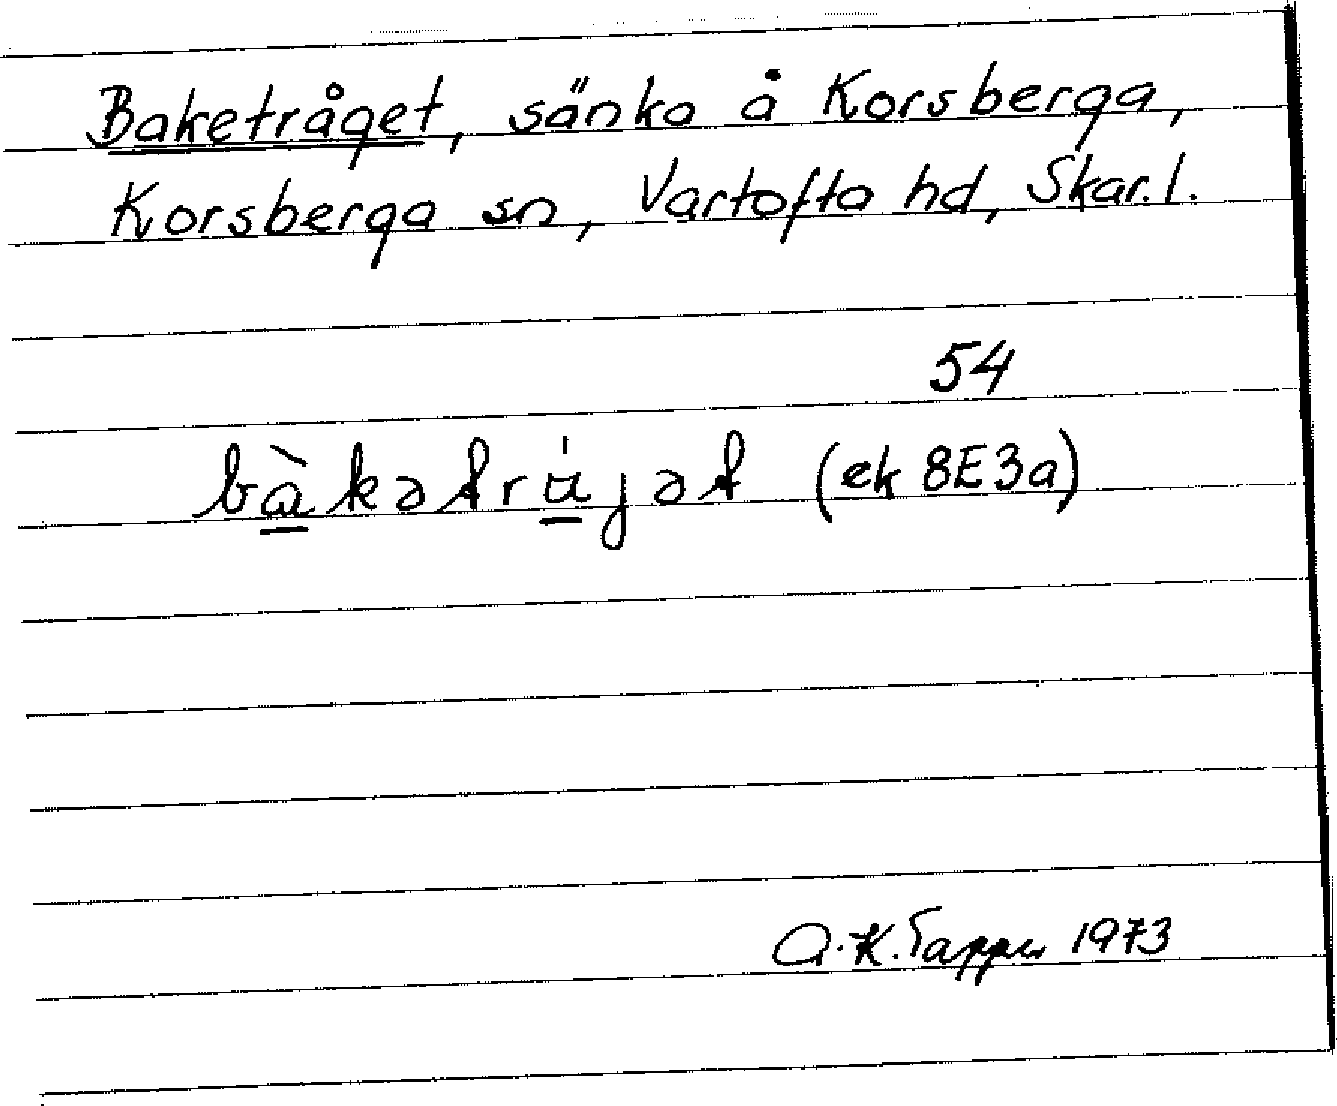 Baketråget, sänka å Korsberga,
Korsberga sn, Vartofta hd, Skar.l.
54
bàkətrújət (ek 8E3a)
A.K. 1973